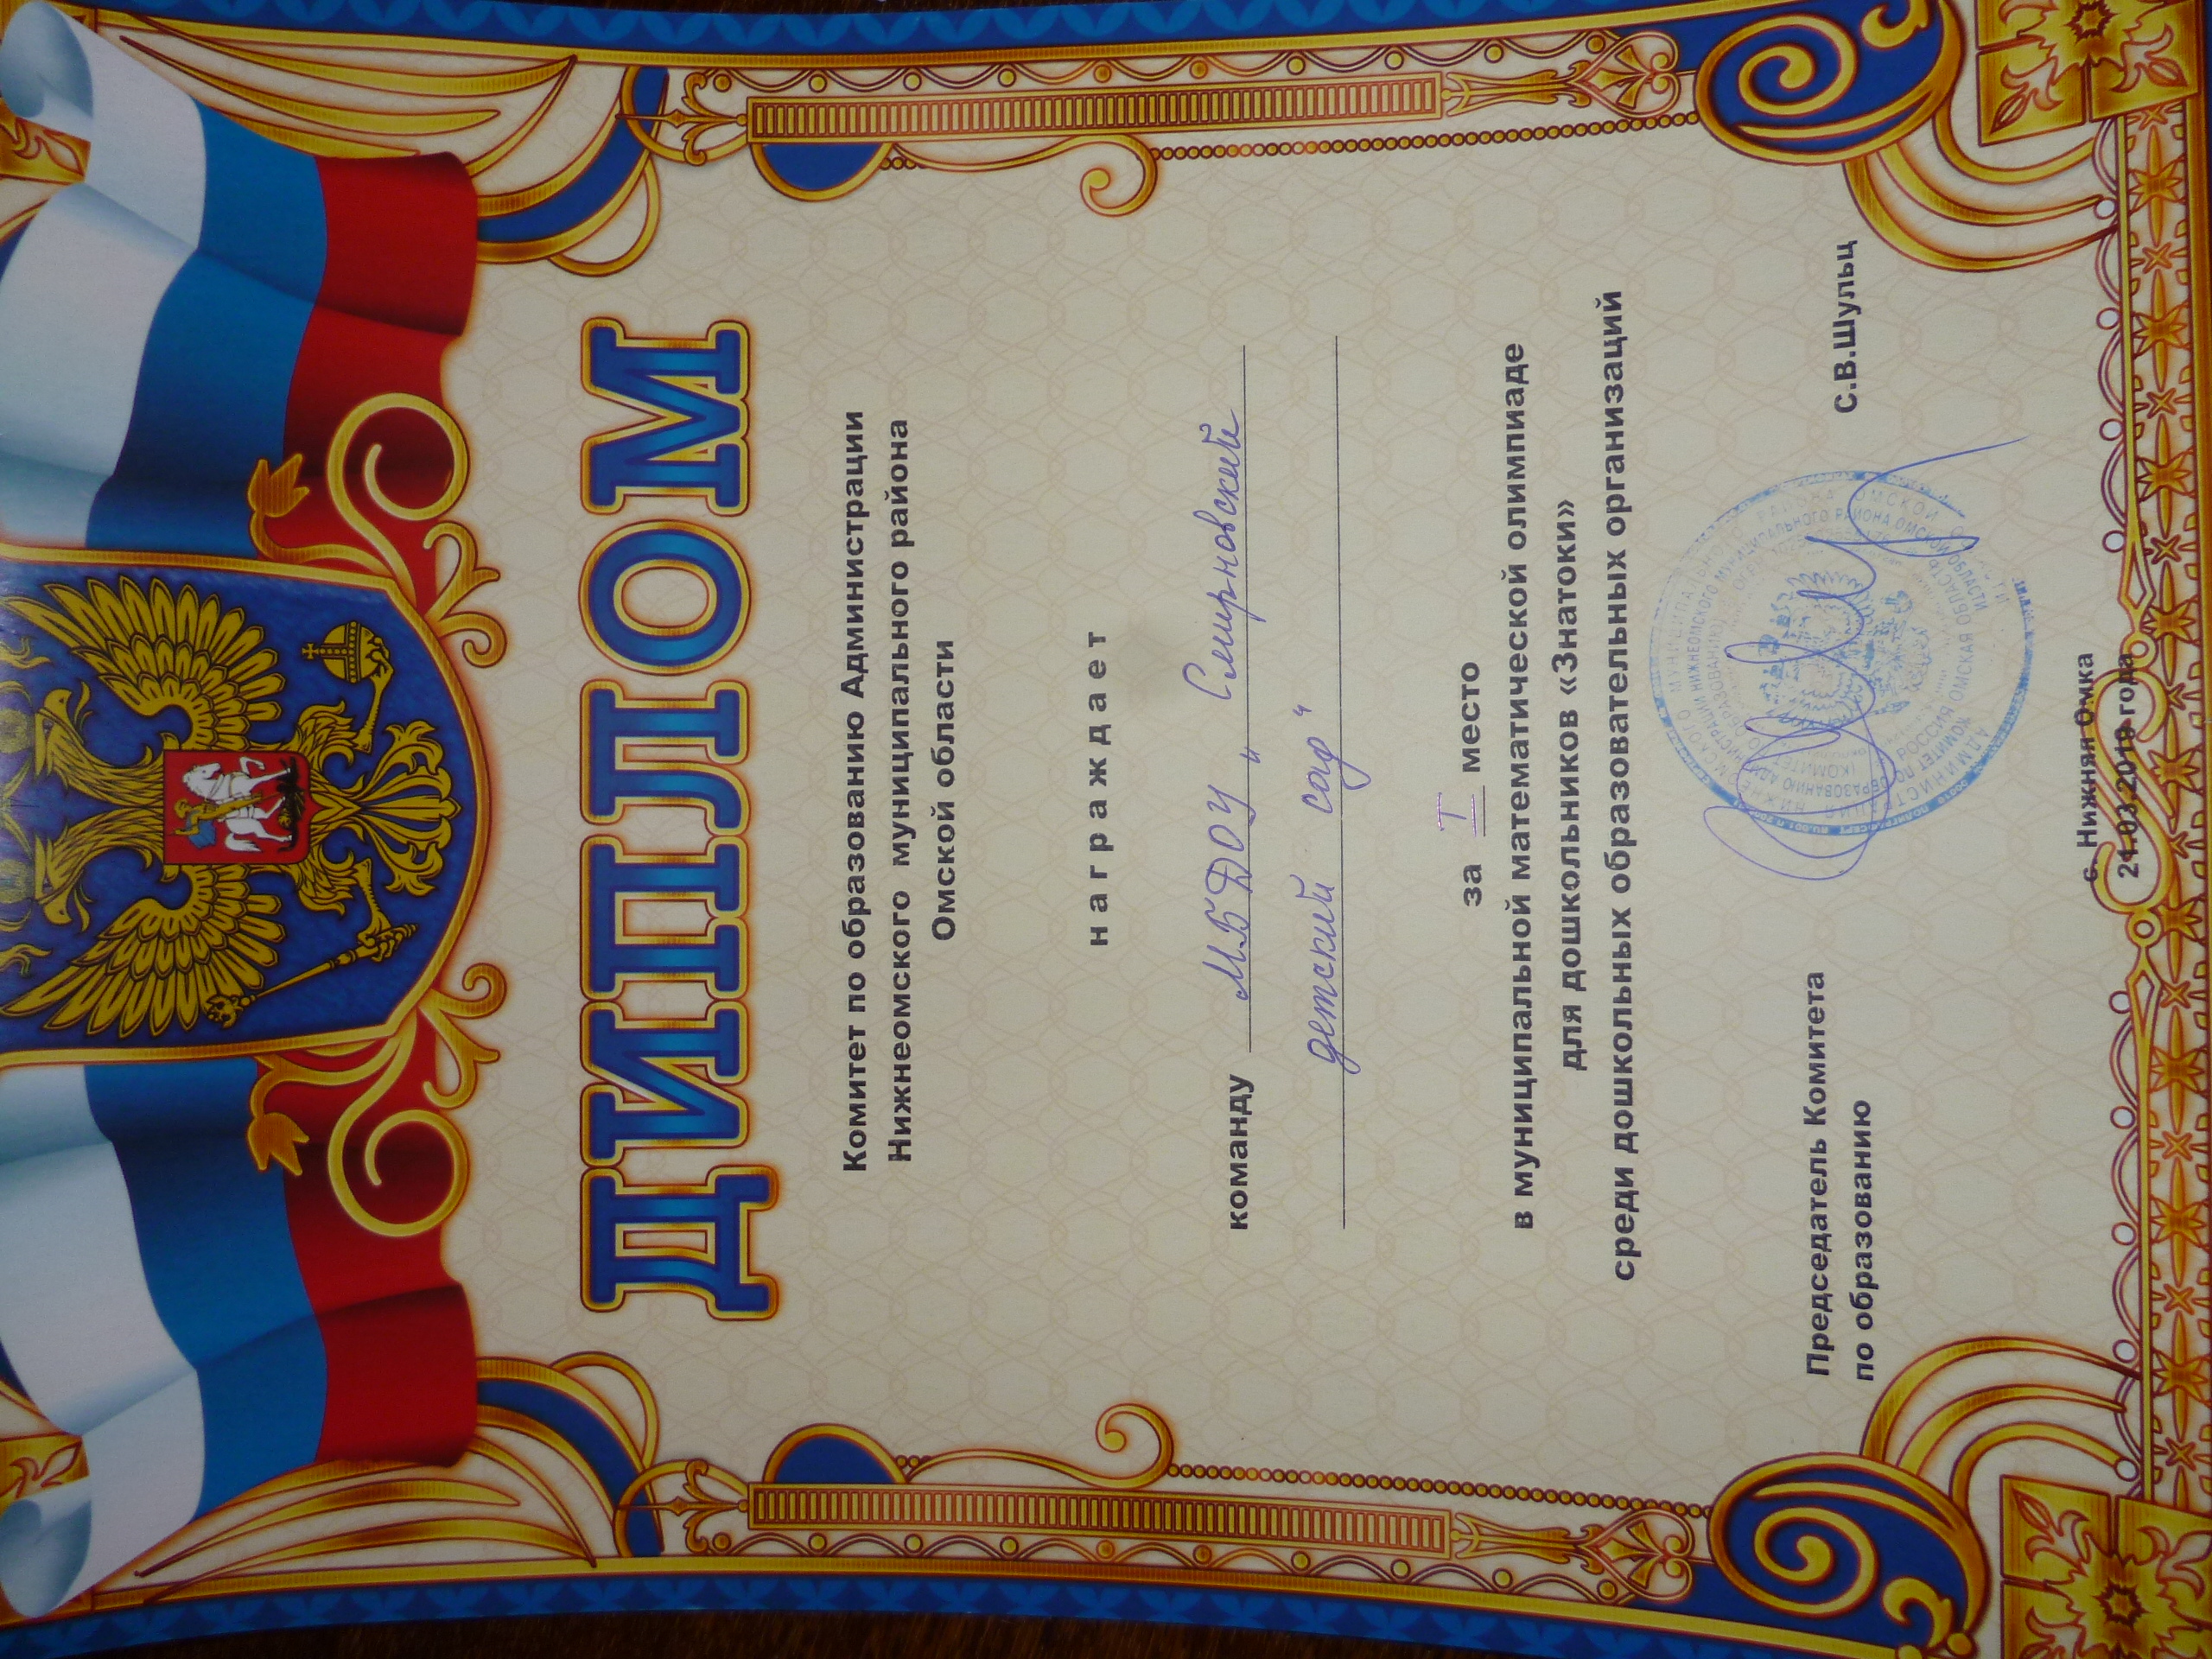 ДИПЛОМ
Комитет по образованию Администрации
Нижнеомского муниципального района
Омской области
награждает
команду МБДОУ „ Смирновский
детский сад“
за I место
в муниципальной математической олимпиаде
для дошкольников «Знатоки»
среди дошкольных образовательных организаций
Председатель Комитета
по образованию
С.В.Шульц
РОССИЯ ОМСКАЯ ОБЛАСТЬ
с. Нижняя Омка
21.03.2019 года